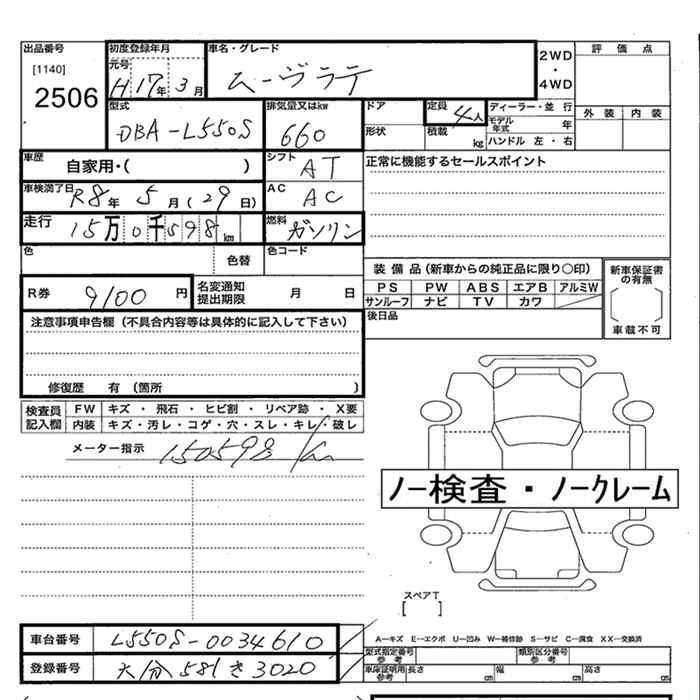 出品番号
[1140]
2506
初度登録年月
元号
H17年3月
車名・グレード
ムーヴラテ
2WD
・
4WD
評価点
外装 内装
型式
DBA-L550S
排気量又はkw
660
ドア
定員
4人
形状
積載
kg
ディーラー・並行
モデル年式 年
ハンドル 左・右
車歴
自家用・( )
シフト
AT
正常に機能するセールスポイント
車検満了日
R8年5月(29日)
AC
AC
走行
15万0千598km
燃料
ガソリン
色
色替
色コード
R券 9100円
名変通知
提出期限
月 日
装備品(新車からの純正品に限り○印)
PS PW ABS エアB アルミW
サンルーフ ナビ TV カワ
新車保証書
の有無
車載不可
後日品
注意事項申告欄(不具合内容等は具体的に記入して下さい)
修復歴 有 (箇所 )
検査員
記入欄
FW キズ・飛石・ヒビ割・リペア跡・X要
内装 キズ・汚レ・コゲ・穴・スレ・キレ・破レ
メーター指示
150598km
ノー検査・ノークレーム
スペアT
[ ]
車台番号 L550S-0034610
登録番号 大分 581 き 3020
A―キズ E―エクボ U―凹み W―補修跡 S―サビ C―腐食 XX―交換済
型式指定番号
参考
類別区分番号
参考
車庫証明用
参考
長さ cm 幅 cm 高さ cm